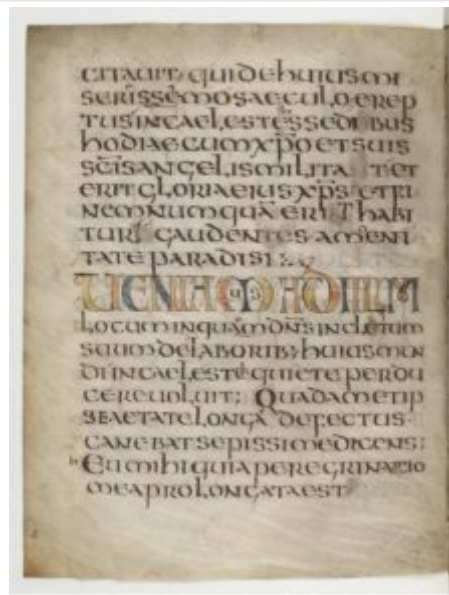 CITAUIT; qui dehuiusmi
serissemo saeculo erep
tus incaelestes sedibus
hodiae cum xpo et suis
scis angelis milita tet
erit gloria eius xps et fi
nem numquā
tur gaudentes ameni
tate paradisi:
UENIAMUS AD ILLUM
locum inquam dns inclitum
suum delaborib; huius mun
di in caeleste quiete perdu
cere uoluit; Quadam etip
se aetate longa defectus
canebat sepissime dicens:
Eu mihi quia peregrinatio
mea prolongata est